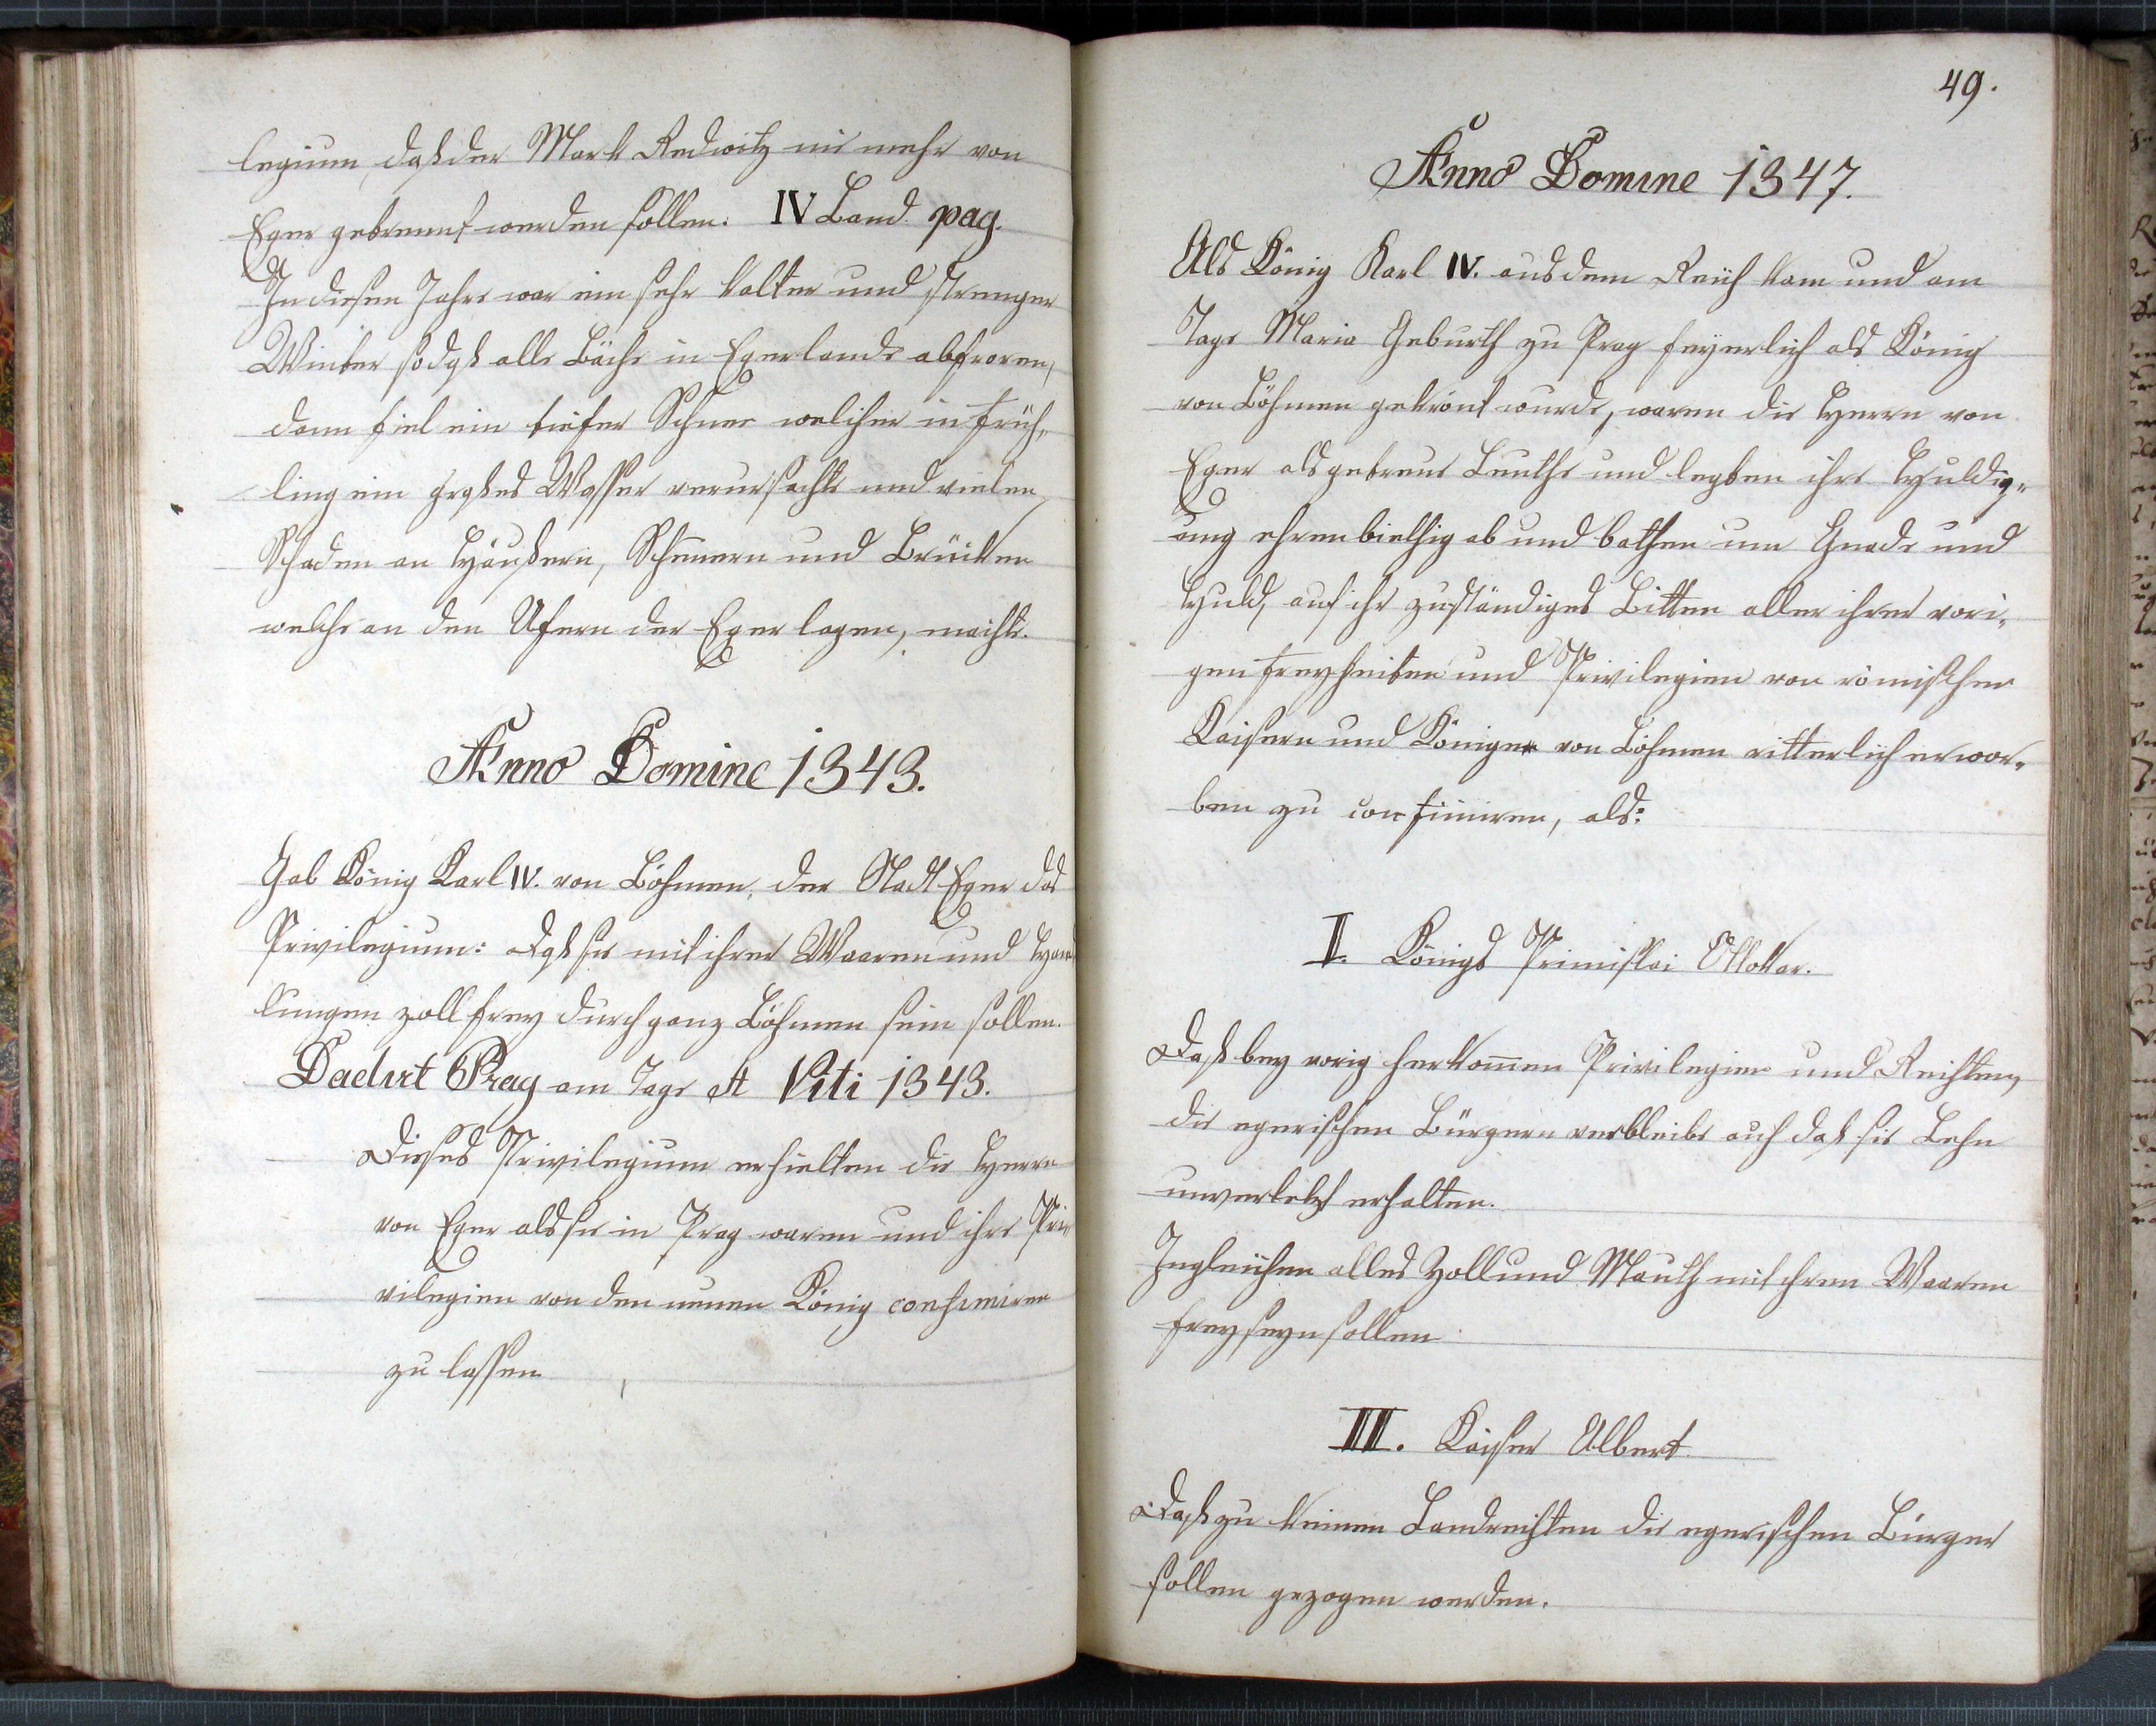 legium, daß der Mark Redwitz nie mehr von
Eger getrennt werden sollen. IV Band pag.
In diesen Jahre war ein sehr kalter und strenger
Winter so daß alle Bäche in Egerlande abfroren,
dann fiel ein tiefer Schnee welcher in Früh-
ling ein großes Wasser verursachte und vielen
Schaden an Häußern, Scheuern und Brücken
welche an den Ufern der Eger lagen, machte.
Anno Domine 1343.
Gab König Karl IV. von Böhmen, der Stadt Eger das
Privilegium: daß sie mit ihrer Waaren und Han
lungen zollfrey durch ganz Böhmen sein sollen.
Dadirt Prag am Tage St Viti 1343.
Dieses Privilegium erhielten die Herrn
von Eger als sie in Prag waren und ihre Pri-
vilegien von den neuen König confimiren
zu lassen
49.
Anno Domine 1347.
Als König Karl IV. aus dem Reich kam und am
Tage Maria Geburth zu Prag feyerlich als König
von Böhmen gekrönt wurde, waren die Herrn von
Eger als getreue Leuthe und legten ihre Huldig-
ung ehrenbiethig ab und bathen um Gnade und
Huld, auf ihr zuständiges Bitten aller ihrer vori-
gen Freyheiten und Privilegien von römischen
Kaisern und Königen von Böhmen ritterlich erwor-
ben zu confimiren, als:
I. Königs Primislai Ottokar.
Daß bey vorig herkom̄en Privilegien und Rechten,
die egerischen Bürgern verbleibe auch daß sie Lehn
unverletzt erhalten.
Ingleichen alles Zoll und Mauth mit ihren Waaren
frey seyn sollen.
III. Kaiser Albert.
Daß zu keinen Landrechten die egerischen Bürger
sollen gezogen werden.